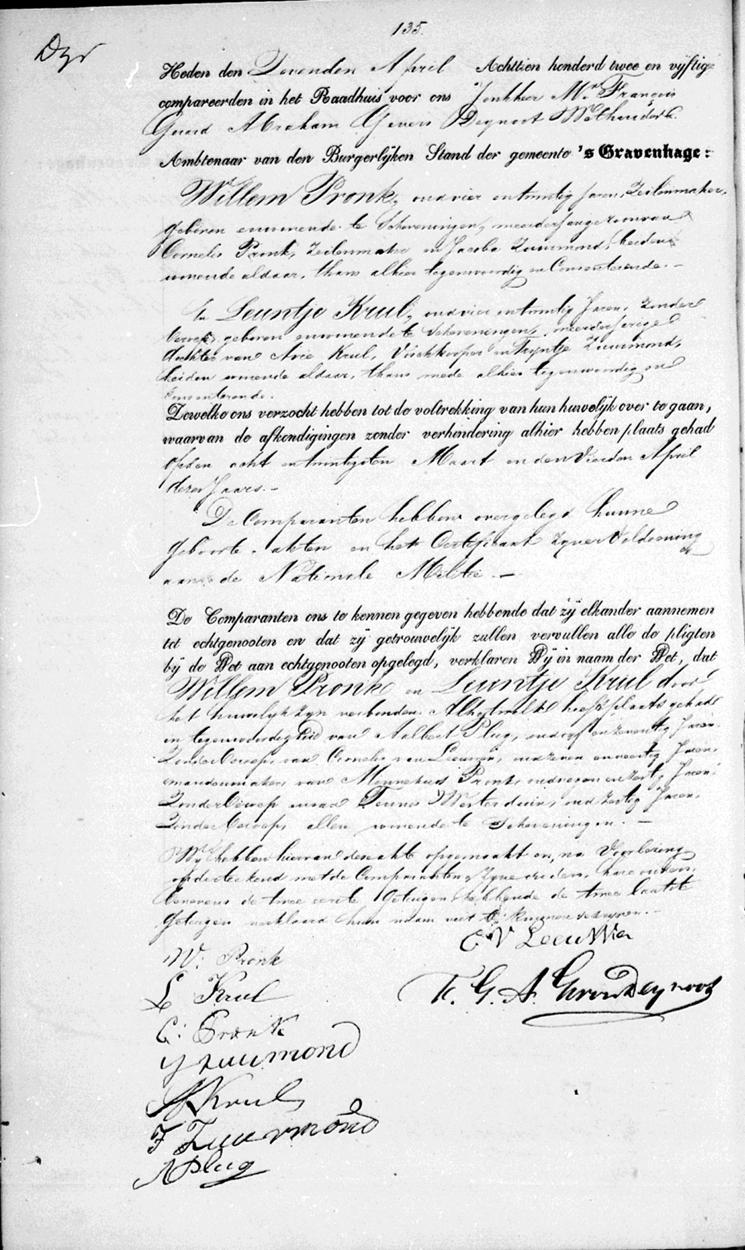 135.
Heden den Zevenden April Achttien honderd twee en vijftig
compareerden in het Raadhuis voor ons Jonkheer Mr François
Gerard Abraham Gevers Deynoot Wethouder
Ambtenaar van den Burgerlijken Stand der gemeente 's Gravenhage:
Willem Pronk, oud vier en twintig Jaren, Zeilenmaker,
geboren en wonende te Scheveningen, meerderjarige zoon van
Cornelis Pronk, Zeilenmaker en Jacoba Zuurmond, beiden
wonende aldaar, thans alhier tegenwoordig en Consenteerende.—
En Leuntje Krul, oud vier en twintig Jaren, Zonder
beroep, geboren en wonende te Scheveningen, meerderjarige
dochter van Arie Krul, Vischkooper en Zuurmond,
beiden wonende aldaar, thans mede alhier tegenwoordig en
Consenteerende.
Dewelke ons verzocht hebben tot de voltrekking van hun huwelijk over te gaan,
waarvan de afkondigingen zonder verhindering alhier hebben plaats gehad
op den acht en twintigsten Maart en den Vierden April
dezes Jaars.—
De Comparanten hebben overgelegd hunne
geboorte-akten en het Certificaat zyner Voldoening
aan de Nationale Militie.—
De Comparanten ons te kennen gegeven hebbende dat zij elkander aannemen
tot echtgenooten en dat zij getrouwelijk zullen vervullen alle de pligten
bij de Wet aan echtgenooten opgelegd, verklaren Wij in naam der Wet, dat
Willem Pronk en Leuntje Krul door
het huwelijk zyn verbonden. Alhetwelk heeft plaats gehad
in tegenwoordigheid van Aalbert Plug, oud en zeventig Jaren
Zonder beroep, van Cornelis van Leeuwen, oud zeven en veertig Jaren,
mandenmaker, van Pronk, oud en zestig Jaren
Zonder beroep en van Teunis Westerduin, oud zestig Jaren,
Zonder beroep, allen wonende te Scheveningen.—
Wy hebben hiervan deze akte opgemaakt en, na Voorlezing
onderteekend met de Comparanten, hare ouders,
benevens de twee eerste Getuigen, hebbende de twee laatste
Getuigen verklaard hun naam niet te kunnen schryven.—
C V Leeuwen
W: Pronk
L Krul
F. G. A. Gevers Deynoot
C: Pronk
J Zuurmond
A Krul
F Zuurmond
A Plug